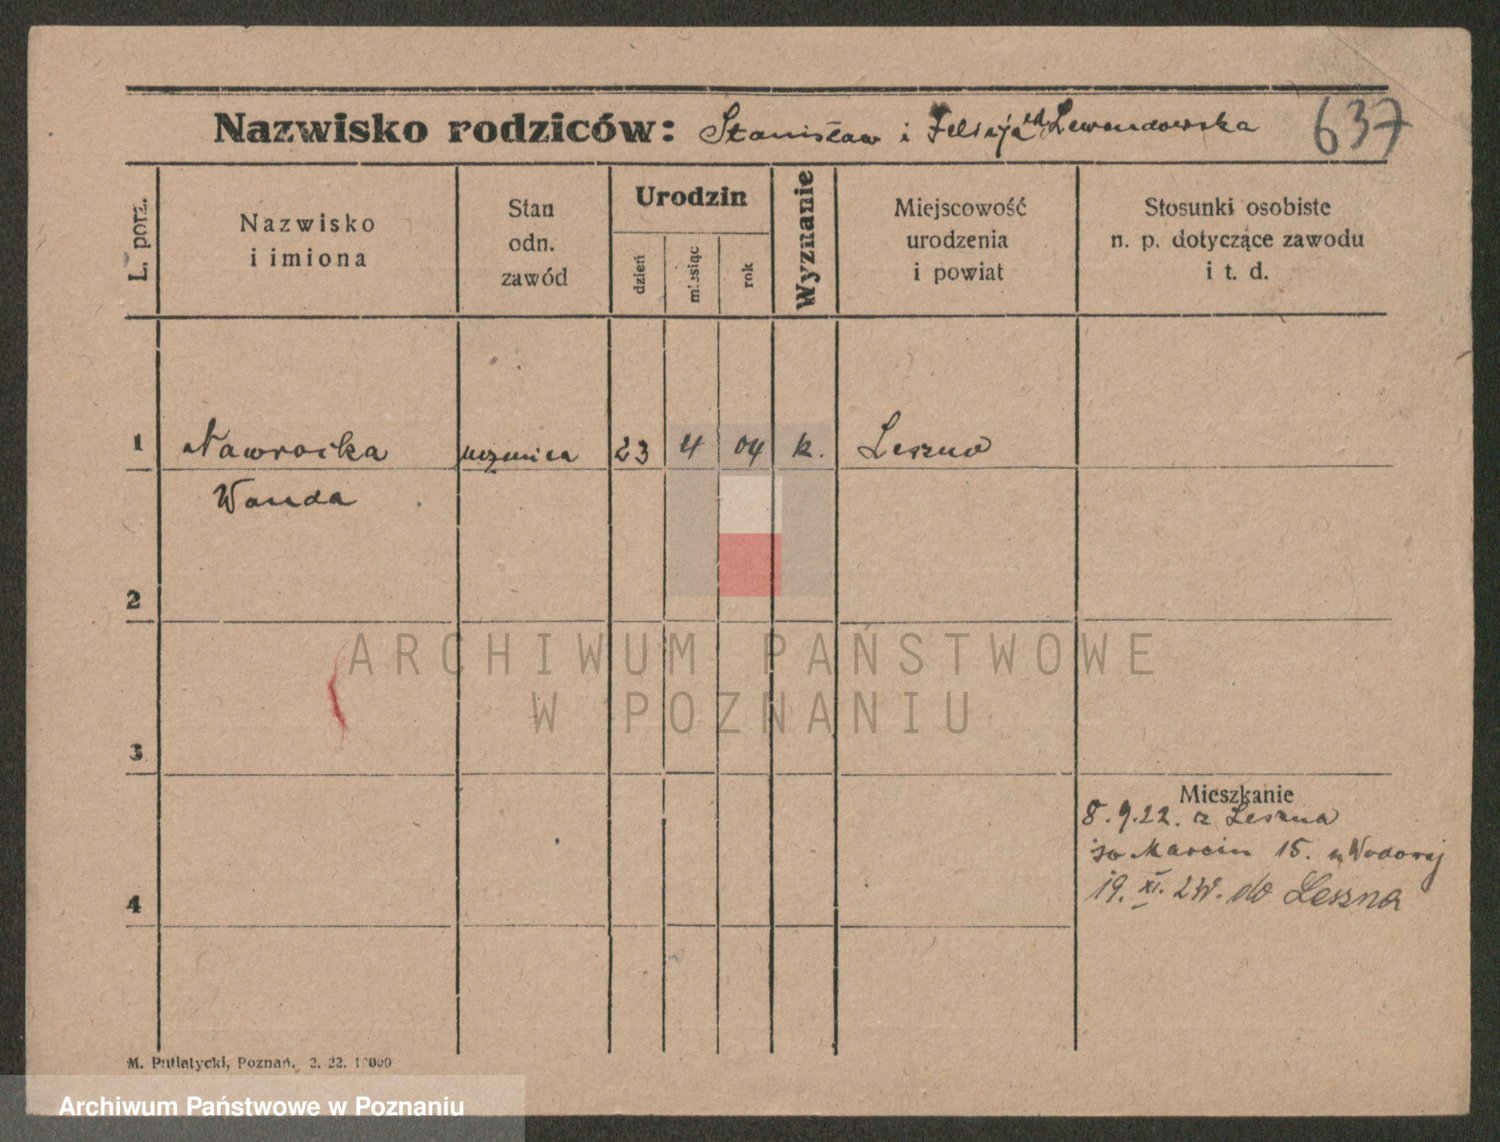 Nazwisko rodziców: Stanisław i Felicja zd Lewandowska 637
L. porz.
Nazwisko
i imiona
Stan
odn.
zawód
Urodzin
dzień
miesiąc
rok
Wyznanie
Miejscowość
urodzenia
i powiat
Stosunki osobiste
n. p. dotyczące zawodu
i t. d.
1 Nawrocka uczenica 23 4 04 k. Leszno
Wanda
2
3
4
Mieszkanie
8.9.22. z Leszna
Marcin 15. Wodovej
19. XI. do Leszna
M. Putiatycki, Poznań. 2. 22.
ARCHIWUM PAŃSTWOWE
W POZNANIU
Archiwum Państwowe w Poznaniu